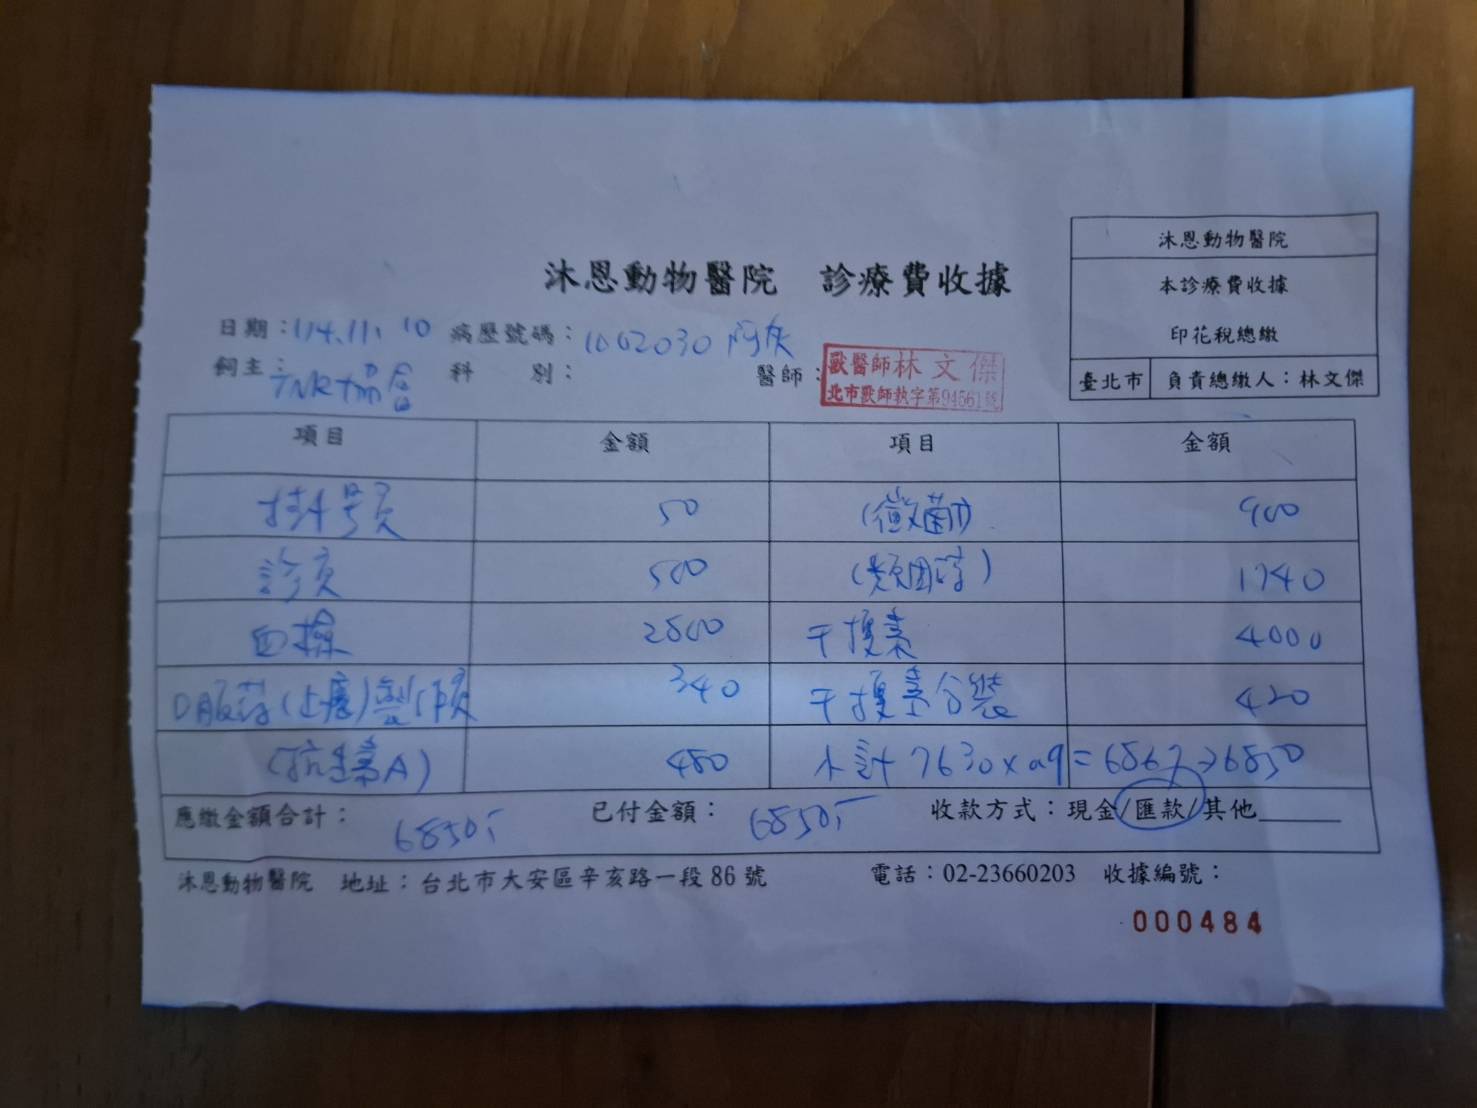 沐恩動物醫院
本診療費收據
印花稅總繳
臺北市 負責總繳人：林文傑
沐恩動物醫院 診療費收據
日期：114.11.10 病歷號碼：1002030 阿灰
飼主： 科 別： 醫師：
獸醫師林文傑
北市獸師執字第94561號
項目 金額 項目 金額
掛號費 50 (黴菌) 900
診費 500 1740
血檢 2800 干擾素 4000
口服藥(止瀉) 340 干擾素分裝 420
(抗生素A) 480 小計 7630x0.9=6867→6850
應繳金額合計：6850 已付金額：6850 收款方式：現金/匯款/其他
沐恩動物醫院 地址：台北市大安區辛亥路一段86號 電話：02-23660203 收據編號：
000484